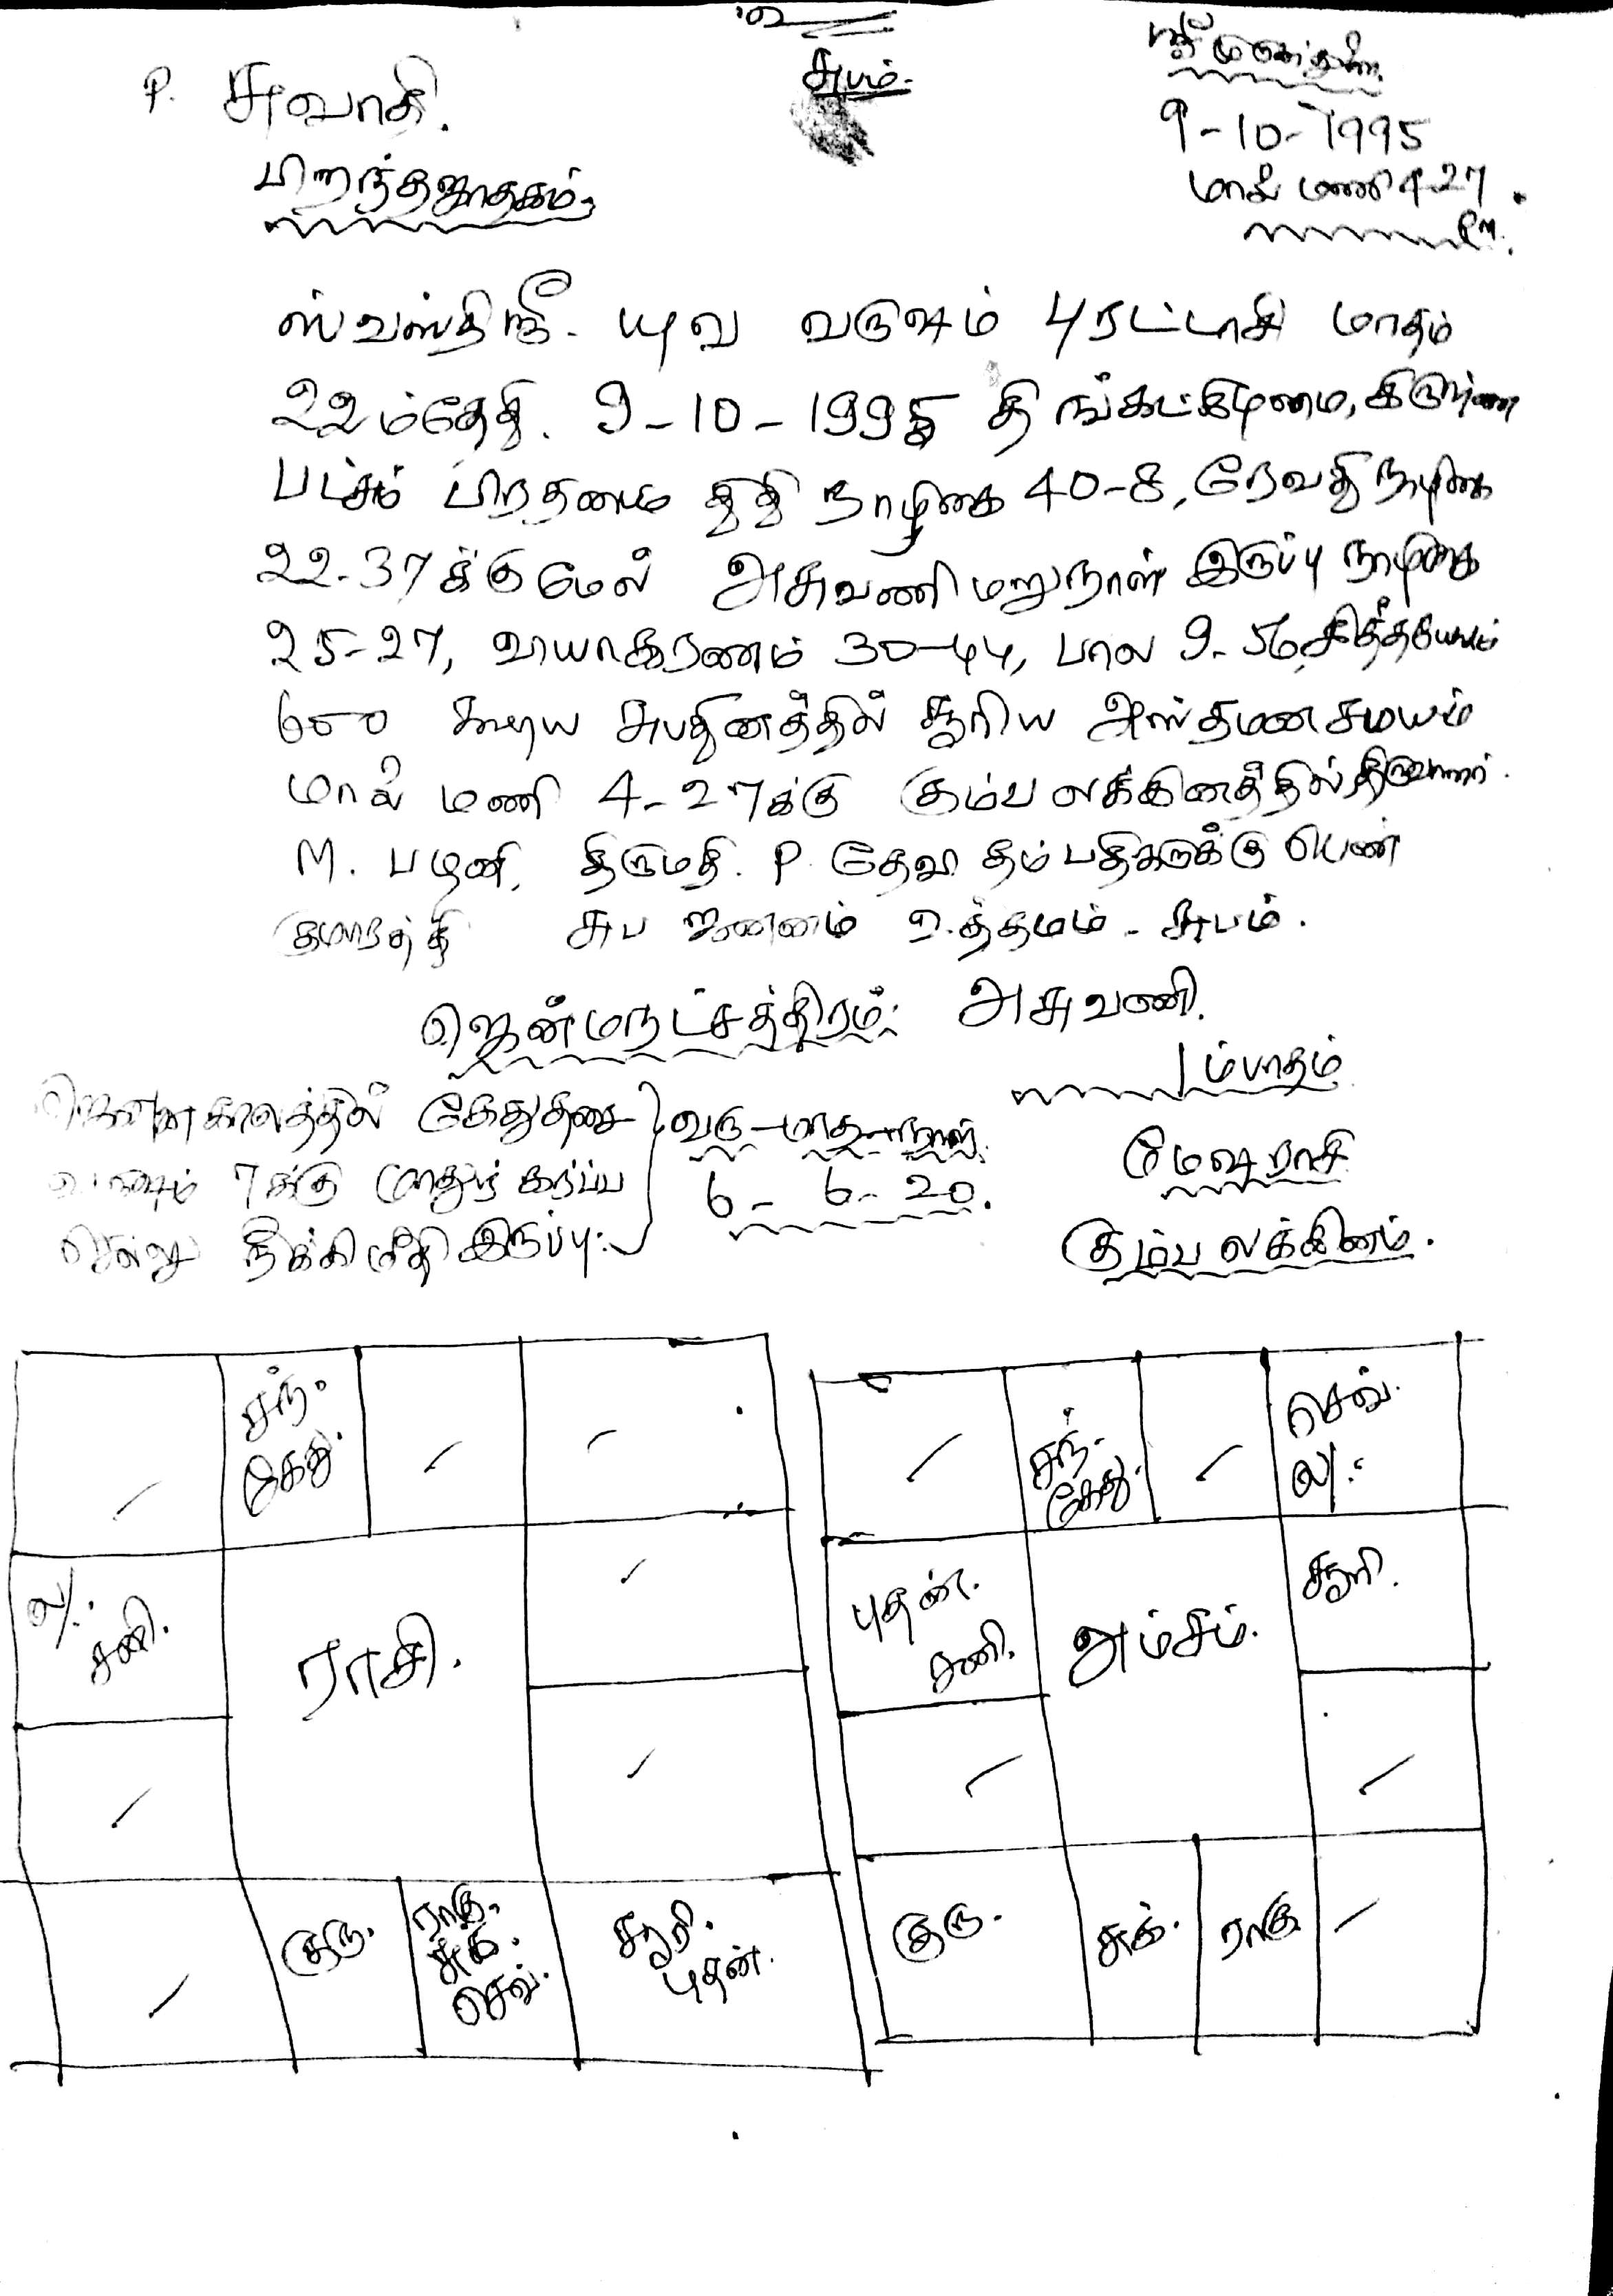 உ
சுபம்.
ஸ்ரீ முருகன் துணை.
P. சுவாதி.
9-10-1995
பிறந்த ஜாதகம்.
மாலை மணி 4-27
PM.
ஸ்வஸ்திஸ்ரீ. யுவ வருஷம் புரட்டாசி மாதம்
22ம்தேதி. 9-10-1995 திங்கட்கிழமை, கிருஷ்ண
பட்சம் பிரதமை திதி நாழிகை 40-8, ரேவதி நாழிகை
22-37க்குமேல் அசுவணி மறுநாள் இருப்பு நாழிகை
25-27, வியாகரணம் 30-44, பால 9-56, சித்தயோகம்
60 கூடிய சுபதினத்தில் சூரிய அஸ்தமன சமயம்
மாலை மணி 4-27க்கு கும்ப லக்கினத்தில் திருவாளர்.
M. பழனி. திருமதி. P. தேவி தம்பதிகளுக்கு பெண்
குமாரத்தி சுப ஜனனம் உத்தமம் - சுபம்.
ஜென்ம நட்சத்திரம்: அசுவணி.
1ம் பாதம்
ஜெனன காலத்தில் கேதுதிசை வரு-மாத-நாள்.
வருஷம் 7க்கு மாதுர் கர்ப்ப 6-6-20.
மேஷ ராசி
செல்லு நீக்கி மீதி இருப்பு:
கும்ப லக்கினம்.
சந். கேது.
ல/: சனி.
ராசி.
குரு.
ராகு. சுக். செவ்.
சூரி. புதன்.
சந். கேது.
செவ். ல/:
புதன். சனி.
அம்சம்.
சூரி.
குரு.
சுக்.
ராகு